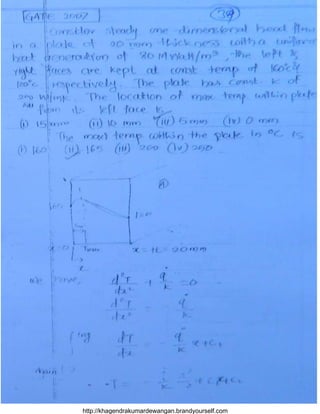 GATE 2007
39
Consider steady one-dimensional heat flow
in a plate of 20 mm thickness with a uniform
heat generation of 80 MWatt/m³, the left &
right faces are kept at const temp of 160°c &
120°c respectively. The plate has const k of
200 W/mk. The location of max temp within plate
from its left face is
(i) 15 mm (ii) 10 mm (iii) 5 mm (iv) 0 mm
The max temp within the plate in °C is
(i) 160 (ii) 165 (iii) 200 (iv) 250
160
120
x=0
x = tL = 20mm
x
We have,
d²T/dx² + q/k = 0
d²T/dx² = - q/k
∫ing dT/dx = - q/k x + C₁
again
T = - q/k x²/2 + C₁x + C₂
http://khagendrakumardewangan.brandyourself.com